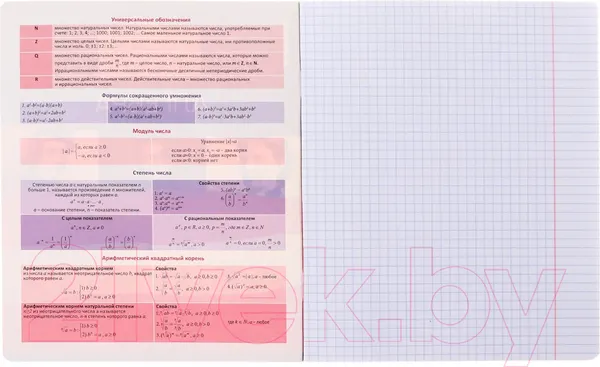 Универсальные обозначения
N множество натуральных чисел. Натуральными числами называются числа, употребляемые при
счете: 1; 2; 3; 4; ...; 1000; 1001; 1002... Самое маленькое натуральное число 1.
Z множество целых чисел. Целыми числами называются натуральные числа, им противоположные
числа и ноль. 0, ±1; ±2; ±3...
Q множество рациональных чисел. Рациональными числами называются числа, которые можно
представить в виде дроби m/n, где m – целое число, n – натуральное число, или m ∈ Z, n ∈ N.
Иррациональными числами называются бесконечные десятичные непериодические дроби.
R множество действительных чисел. Действительные числа – множество рациональных
и иррациональных чисел.
Формулы сокращенного умножения
1. a²-b²=(a-b)(a+b)
2. (a+b)²=a²+2ab+b²
3. (a-b)²=a²-2ab+b²
4. a³+b³=(a+b)(a²-ab+b²)
5. a³-b³=(a-b)(a²+ab+b²)
6. (a+b)³=a³+3a²b+3ab²+b³
7. (a-b)³=a³-3a²b+3ab²-b³
Модуль числа
|a| = a, если a ≥ 0.
−a, если a < 0
Уравнение |x|=a
если a>0: x₁ = a, x₂ = -a – два корня
если a=0: x = 0 – один корень
если a<0: корней нет
Степень числа
Степенью числа a с натуральным показателем n
больше 1, называется произведение n множителей,
каждый из которых равен a:
a – основание степени, n – показатель степени.
Свойства степени
1. a¹ = a
С целым показателем
aⁿ, n ∈ Z, a ≠ 0
С рациональным показателем
Арифметический квадратный корень
Арифметическим квадратным корнем
из числа a называется неотрицательное число b, квадрат
которого равен a.
√a = b 1) b ≥ 0
2) b² = a, a ≥ 0
Свойства
Арифметическим корнем натуральной степени
n≥2 из неотрицательного числа a называется
неотрицательное число, n-я степень которого равна a.
ⁿ√a = b 1) b ≥ 0
2) bⁿ = a, a ≥ 0
Свойства
где k ∈ N, a – любое
21vek.by